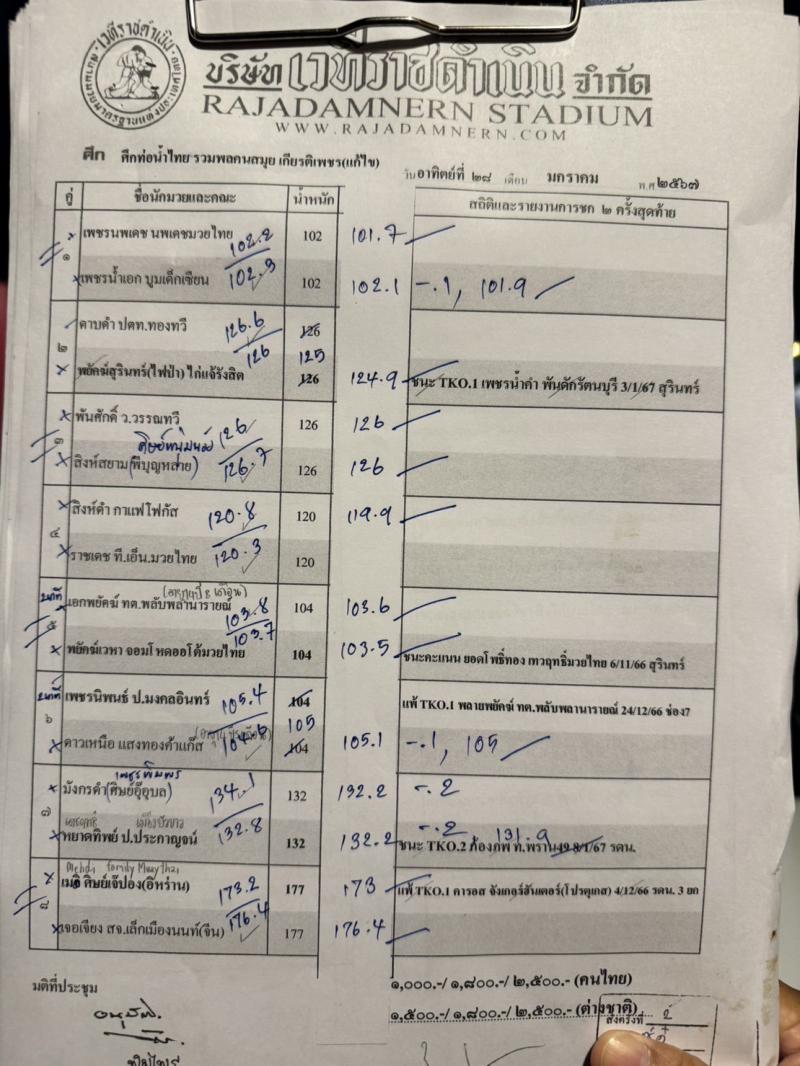 เวทีราชดำเนิน
บริษัท เวทีราชดำเนิน จำกัด
RAJADAMNERN STADIUM
WWW.RAJADAMNERN.COM
ศึก ศึกท่อน้ำไทย รวมพลคนสมุย เกียรติเพชร(แก้ไข)
วันอาทิตย์ที่ ๒๘ เดือน มกราคม พ.ศ.๒๕๖๗
คู่ ชื่อนักมวยและคณะ น้ำหนัก สถิติและรายงานการชก ๒ ครั้งสุดท้าย
๑ เพชรนพเดช นพเดชมวยไทย 102.2 102 101.7
เพชรน้ำเอก บูมเด็กเซียน 102.3 102 102.1 -.1, 101.9
๒ ดาบดำ ปตท.ทองทวี 126.6 126
126 125
พยัคฆ์สุรินทร์(ไฟป่า) ไก่แจ้รังสิต 126 124.9 ชนะ TKO.1 เพชรน้ำดำ พันดักรัตนบุรี 3/1/67 สุรินทร์
๓ พันศักดิ์ ว.วรรณทวี 126 126 126
สิงห์สยาม(พิบุญหล่าย) 126.7 126 126
๔ สิงห์ดำ กาแฟโฟกัส 120.8 120 119.9
ราชเดช ที.เอ็น.มวยไทย 120.3 120
๕ เอกพยัคฆ์ ทต.พลับพลานารายณ์ 103.8 104 103.6
พยัคฆ์เวหา จอมโหดออโต้มวยไทย 103.7 104 103.5 ชนะคะแนน ยอดโพธิ์ทอง เทวฤทธิ์มวยไทย 6/11/66 สุรินทร์
๖ เพชรนิพนธ์ ป.มงคลอินทร์ 105.4 104 แพ้ TKO.1 พลายพยัคฆ์ ทต.พลับพลานารายณ์ 24/12/66 ช่อง7
105
ดาวเหนือ แสงทองค้าแก๊ส 104.6 104 105.1 -.1, 105
เพชรพิมพร
๗ มังกรดำ(ศิษย์อู๊อุบล) 134.1 132 132.2 -.2
-.2 131.9
หยาดทิพย์ ป.ประกาญจน์ 132.8 132 132.2 ชนะ TKO.2 ก้องภพ ท.พราน49 8/1/67 รดน.
Mehdi family Muaythai
๘ เมดิ ศิษย์เจ๊ปอง(อิหร่าน) 173.2 177 173 แพ้ TKO.1 คารอส จังเกอร์ฮันเตอร์(โปรตุเกส) 4/12/66 รดน. 3 ยก
เจอเจียง สจ.เล็กเมืองนนท์(จีน) 176.4 177 176.4
มติที่ประชุม
๑,๐๐๐.-/ ๑,๘๐๐.-/ ๒,๕๐๐.- (คนไทย)
๑,๕๐๐.-/ ๑,๘๐๐.-/ ๒,๕๐๐.- (ต่างชาติ)
ส่งครั้งที่